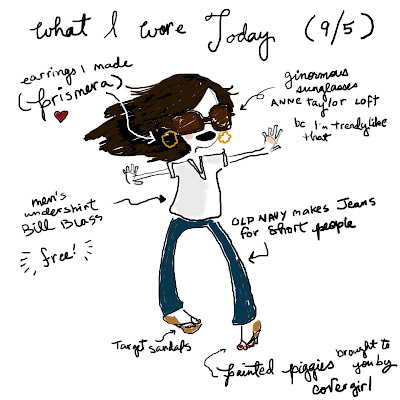 What I Wore Today (9/5)
earrings I made
(prismera)
ginormous
sunglasses
ANNE taylor LOFT
bc I'm trendy like
that
men's
undershirt
Bill Blass
free!
OLD NAVY makes Jeans
for short people
Target sandals
painted piggies brought to
you by
covergirl